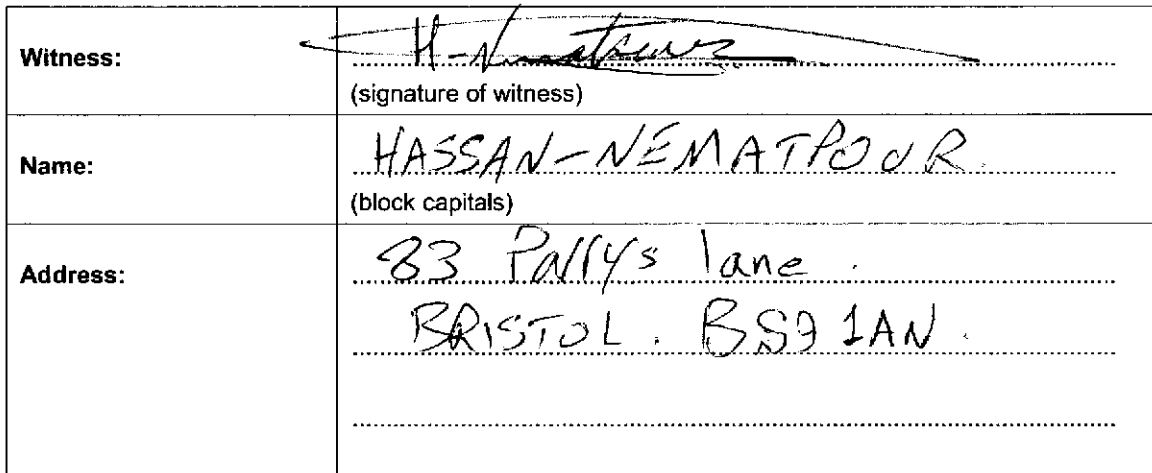 Witness: H-Nematpour
(signature of witness)
Name: HASSAN-NEMATPOUR.
(block capitals)
Address: 83 Parrys lane.
BRISTOL. BS9 1AN.